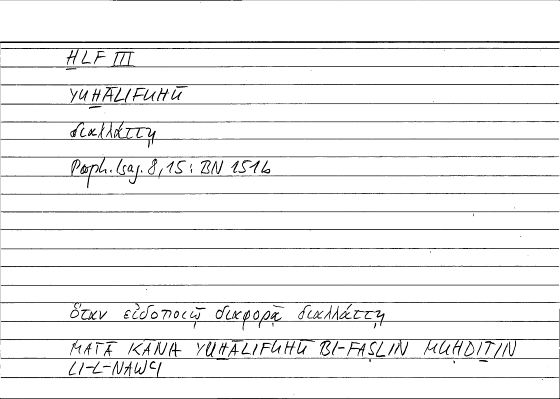 ḪLF III
YUḪĀLIFUHŪ
διαλλάττῃ
Porph. Isag. 8,15 : BN 151b
ὅταν εἰδοποιῷ διαφορᾷ διαλλάττῃ
MATĀ KĀNA YUḪĀLIFUHŪ BI-FAṢLIN MUḤDIṮIN
LI-L-NAWʿI